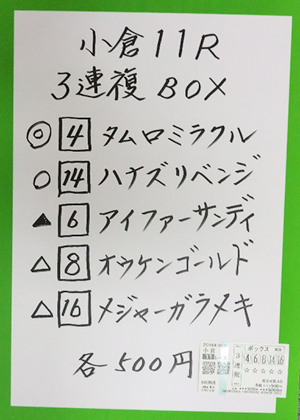 小倉11R
3連複 BOX
◎ 4 タムロミラクル
○ 14 ハナズリベンジ
▲ 6 アイファーサンディ
△ 8 オウケンゴールド
△ 16 メジャーガラメキ
各500円
小倉
ボックス
3連複
4 6 8 14 16
☆☆☆☆☆